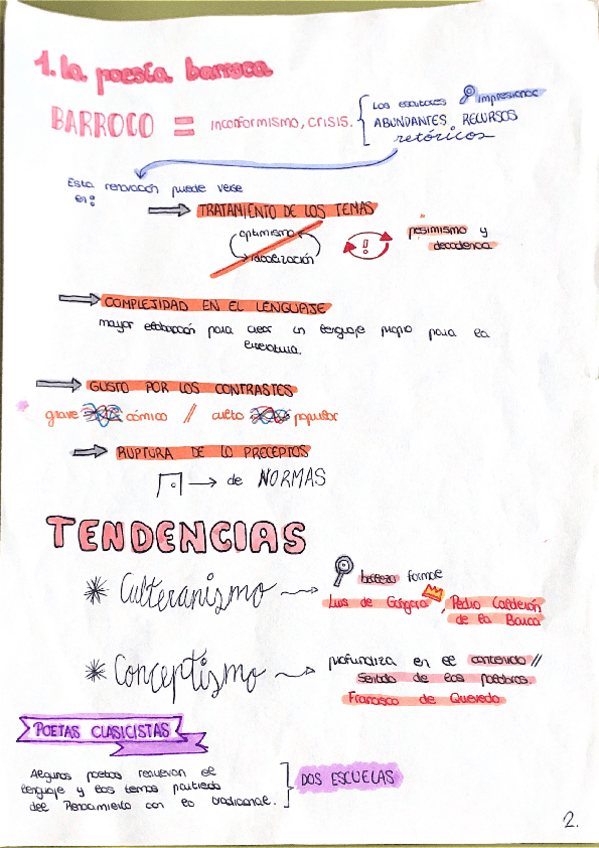 1. la poesía barroca
BARROCO = inconformismo, crisis.
Los escritores impresionar
ABUNDANTES RECURSOS
retóricos
Esta renovación puede verse
en:
TRATAMIENTO DE LOS TEMAS
optimismo
idealización
! pesimismo y
decadencia
COMPLEJIDAD EN EL LENGUAJE
mayor elaboración para crear un lenguaje propio para la
literatura.
GUSTO POR LOS CONTRASTES
grave cómico // culto popular
RUPTURA DE LO PRECEPTOS
de NORMAS
TENDENCIAS
* Culteranismo
belleza formal
Luis de Góngora, Pedro Calderón
de la Barca
* Conceptismo
profundiza en el contenido //
Sentido de las palabras.
Francisco de Quevedo
POETAS CLASICISTAS
Algunos poetas renuevan el
lenguaje y los temas partiendo
del Renacimiento con lo tradicional.
DOS ESCUELAS
2.